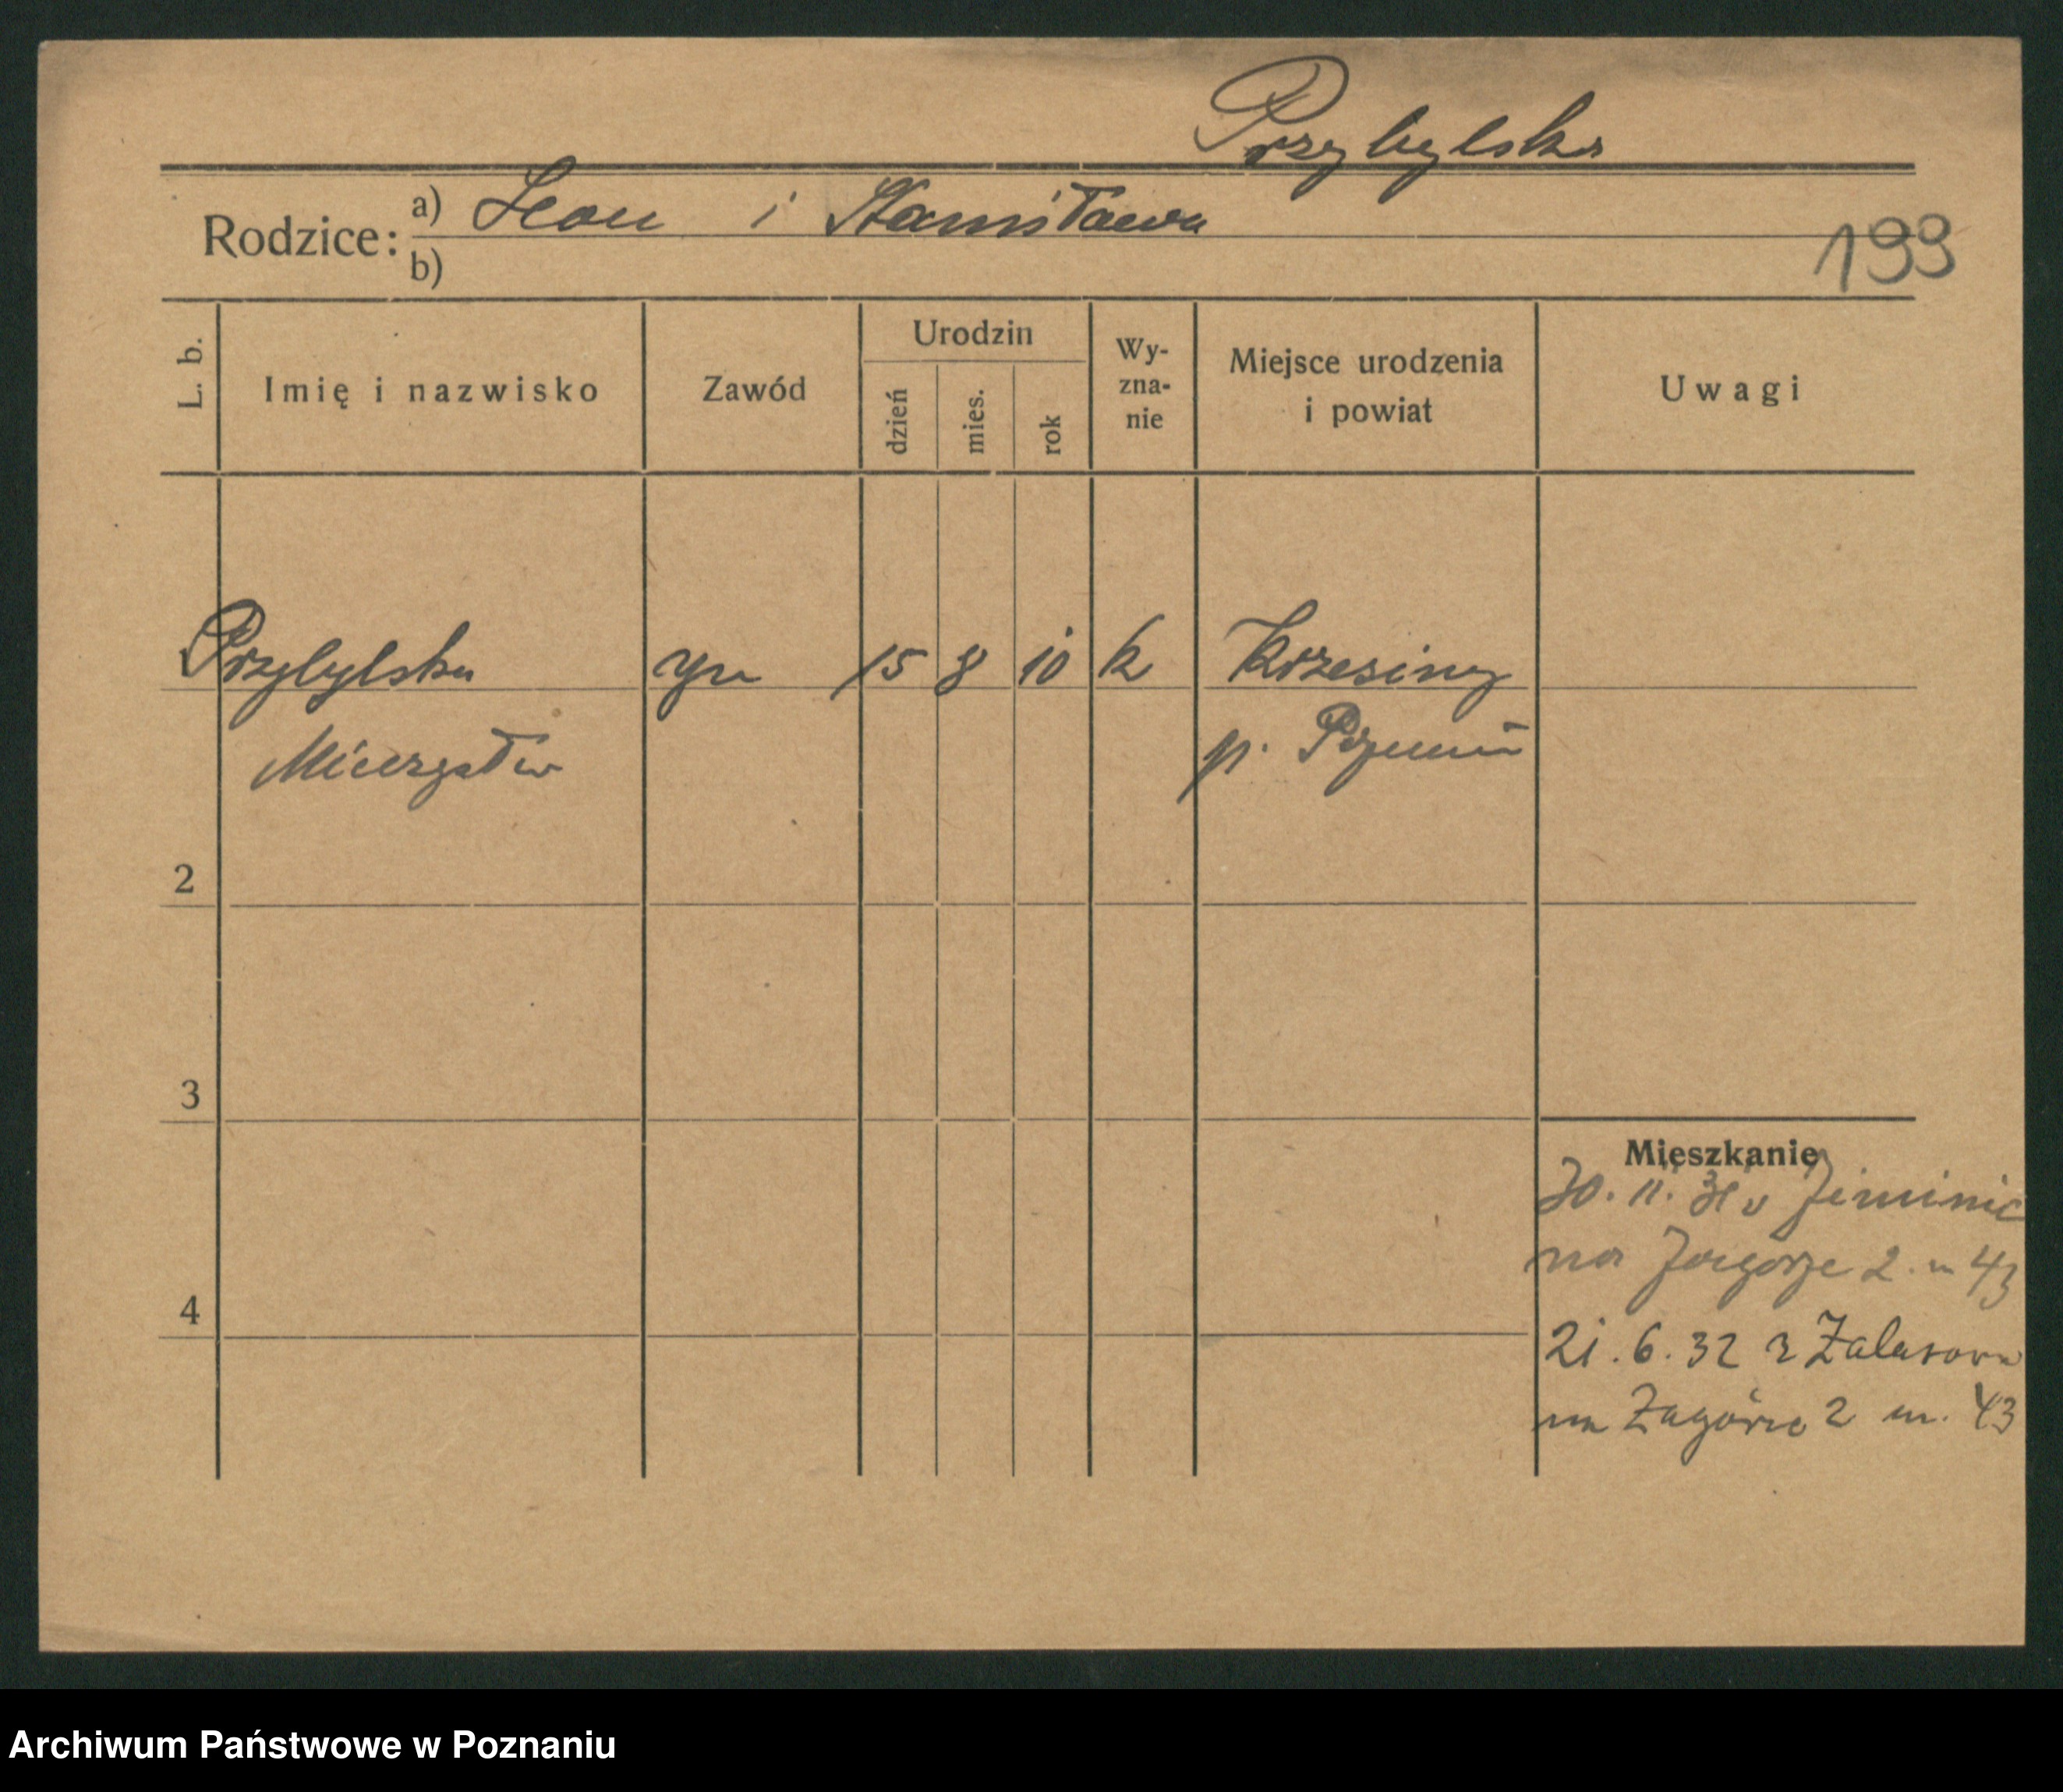 Przybylska
Rodzice: a) Leon i Stanisława
b)
199
L. b.
Imię i nazwisko
Zawód
Urodzin
dzień
mies.
rok
Wy-
zna-
nie
Miejsce urodzenia
i powiat
Uwagi
Przybylska 15 8 10 k Krzesiny
p. Poznań
2
3
4
Mieszkanie
30. 11. 31
na Zagórze 2. m 43
21. 6. 32 z Zalasowa
na Zagórze 2 m. 43
Archiwum Państwowe w Poznaniu